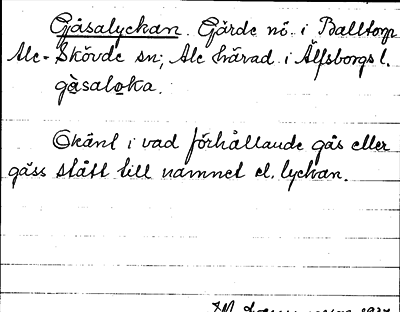 Gåsalyckan. Gärde nö. i Balltorp
Ale-Skövde sn; Ale härad i Älfsborgs l.
gåsaloka.
Okänt i vad förhållande gås eller
gäss stått till namnet el. lyckan.